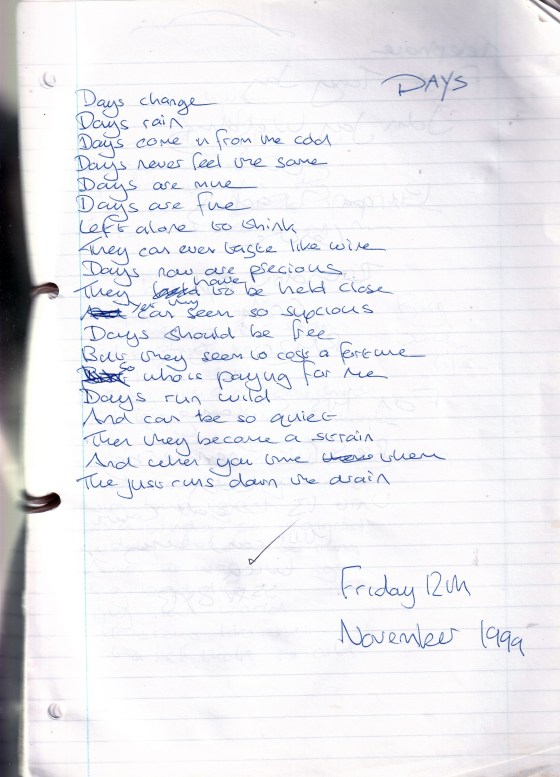 DAYS
Days change
Days rain
Days come in from the cold
Days never feel the same
Days are mine
Days are fine
Left alone to think
They can even taste like wine
Days now are precious
They have to be held close
Yet they can seem so
Days should be free
But they seem to cost a fortune
So who is paying for me
Days run wild
And can be so quiet
Then they become a strain
And when you time them
The just runs down the drain
Friday 12th
November 1999